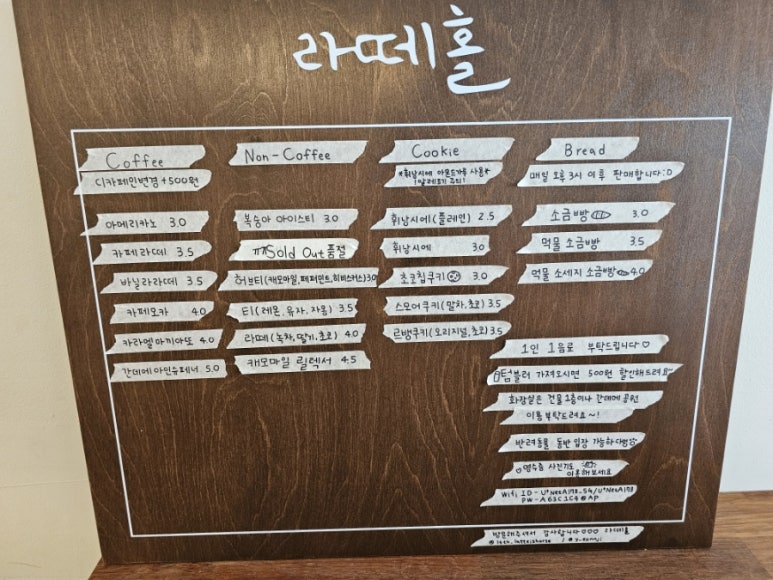 라떼홀
Coffee
디카페인변경 +500원
아메리카노 3.0
카페라떼 3.5
바닐라라떼 3.5
카페모카 4.0
카라멜마끼아또 4.0
간데에아인슈페너 5.0
Non-Coffee
복숭아 아이스티 3.0
ㅠSold Out품절
허브티(캐모마일,페퍼민트,히비스커스)3.0
티(레몬.유자.자몽) 3.5
라떼(녹차,딸기,초코) 4.0
캐모마일 릴렉서 4.5
Cookie
*휘낭시에 아몬드가루 사용*
(알레르기 주의!)
휘낭시에(플레인) 2.5
휘낭시에 3.0
초코칩쿠키 3.0
스모어쿠키(말차,초코) 3.5
르뱅쿠키(오리지널,초코)3.5
Bread
매일 오후 3시 이후 판매합니다:D
소금빵 3.0
먹물 소금빵 3.5
먹물 소세지 소금빵 4.0
1인 1음료 부탁드립니다♡
텀블러 가져오시면 500원 할인해드려요
화장실은 건물 1층이나 간데메공원
이용 부탁드려요~!
반려동물 동반 입장 가능하다멍
영수증 사진기도
이용해보세요
Wifi ID-
PW-
방문해주셔서 감사합니다 라떼홀